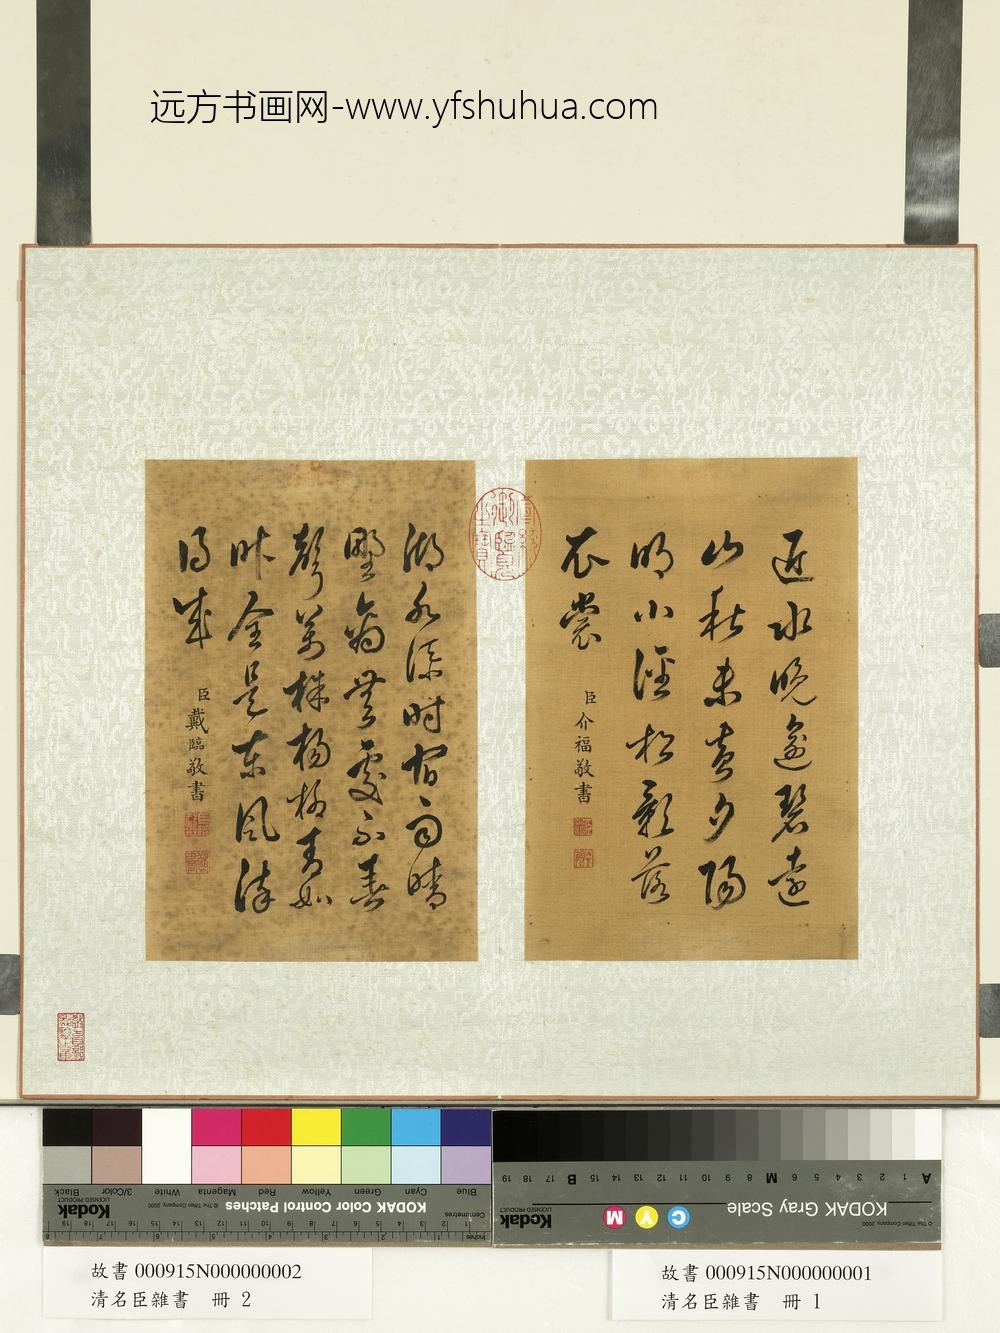 远方书画网-www.yfshuhua.com
近水晚逾碧遠
山秋未黄夕陽
明小徑松影落
衣裳
臣介福敬書
湖水添時宿雨晴
野禽無處不春
聲萬株楊柳青如
昨全是東風染
得成
臣戴臨敬書
Blue Cyan Green Yellow Red Magenta White 3/Color Black
KODAK Color Control Patches
© The Tiffen Company, 2000
Kodak
LICENSED PRODUCT
Centimetres
Inches
A 1 2 3 4 5 6 M 8 9 10 11 12 13 14 15 B 17 18 19
KODAK Gray Scale
© The Tiffen Company, 2000
C Y M
Kodak
LICENSED PRODUCT
故書 000915N000000002
清名臣雜書 冊 2
故書 000915N000000001
清名臣雜書 冊 1